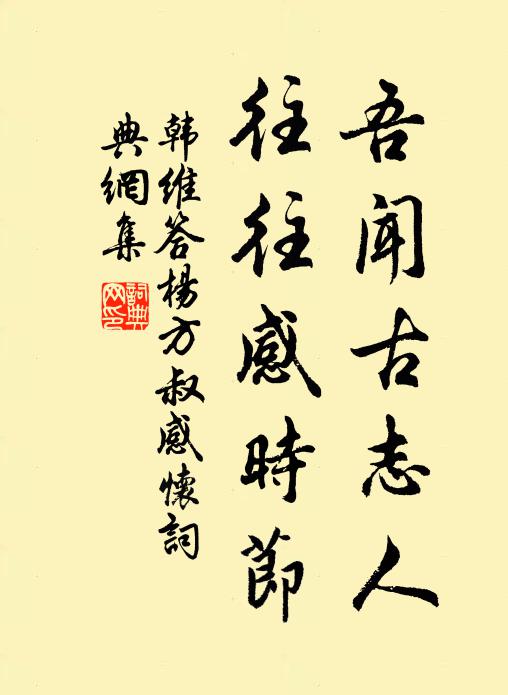 吾闻古志人
往往感時節
韩维答楊方叔感懷詞
典網集
詞典
网印